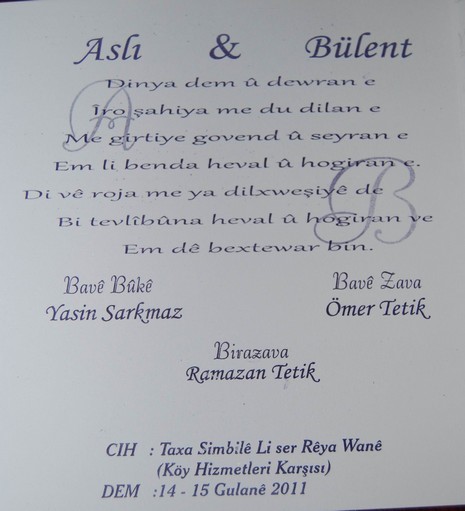 Aslı & Bülent
Dinya dem û dewran e
Îro şahiya me du dilan e
Me girtiye govend û seyran e
Em li benda heval û hogiran e.
Di vê roja me ya dilxweşiyê de
Bi tevlîbûna heval û hogiran ve
Em dê bextewar bin.
A
B
Bavê Bûkê
Yasin Sarkmaz
Bavê Zava
Ömer Tetik
Birazava
Ramazan Tetik
CIH : Taxa Simbilê Li ser Rêya Wanê
(Köy Hizmetleri Karşısı)
DEM :14 - 15 Gulanê 2011